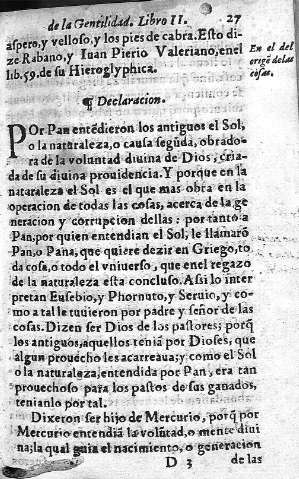 de la Gentilidad. Libro II. 27
aspero, y velloso, y los pies de cabra. Esto di-
ze Rabano, y Iuan Pierio Valeriano, en el
lib. 59. de su Hieroglyphica.
En el del
origẽ de las
cosas.
¶ Declaracion.
POr Pan entẽdieron los antiguos el Sol,
o la naturaleza, o causa segũda, obrado-
ra de la voluntad diuina de Dios, cria-
da de su diuina prouidencia. Y porque en la
nataraleza el Sol es el que mas obra en la
operacion de todas las cosas, acerca de la ge
neracion y corrupcion dellas: por tanto a
Pan, por quien entendian el Sol, le llamarõ
Pan, o Pana, que quiere dezir en Griego, to
da cosa, o todo el vniuerso, que en el regazo
de la naturaleza esta concluso. Assi lo inter
pretan Eusebio, y Phornuto, y Seruio, y co-
mo a tal le tuuieron por padre y señor de las
cosas. Dizen ser Dios de los pastores; porq̃
los antiguos, aquellos teniã por Dioses, que
algun prouecho les acarreaua; y como el Sol
o la naturaleza, entendida por Pan, era tan
prouechoso para los pastos de sus ganados,
tenianlo por tal.
Dixeron ser hijo de Mercurio, porq̃ por
Mercurio entendiã la volũtad, o mente diui
na; la qual guia el nacimiento, o generacion
D 3 de las